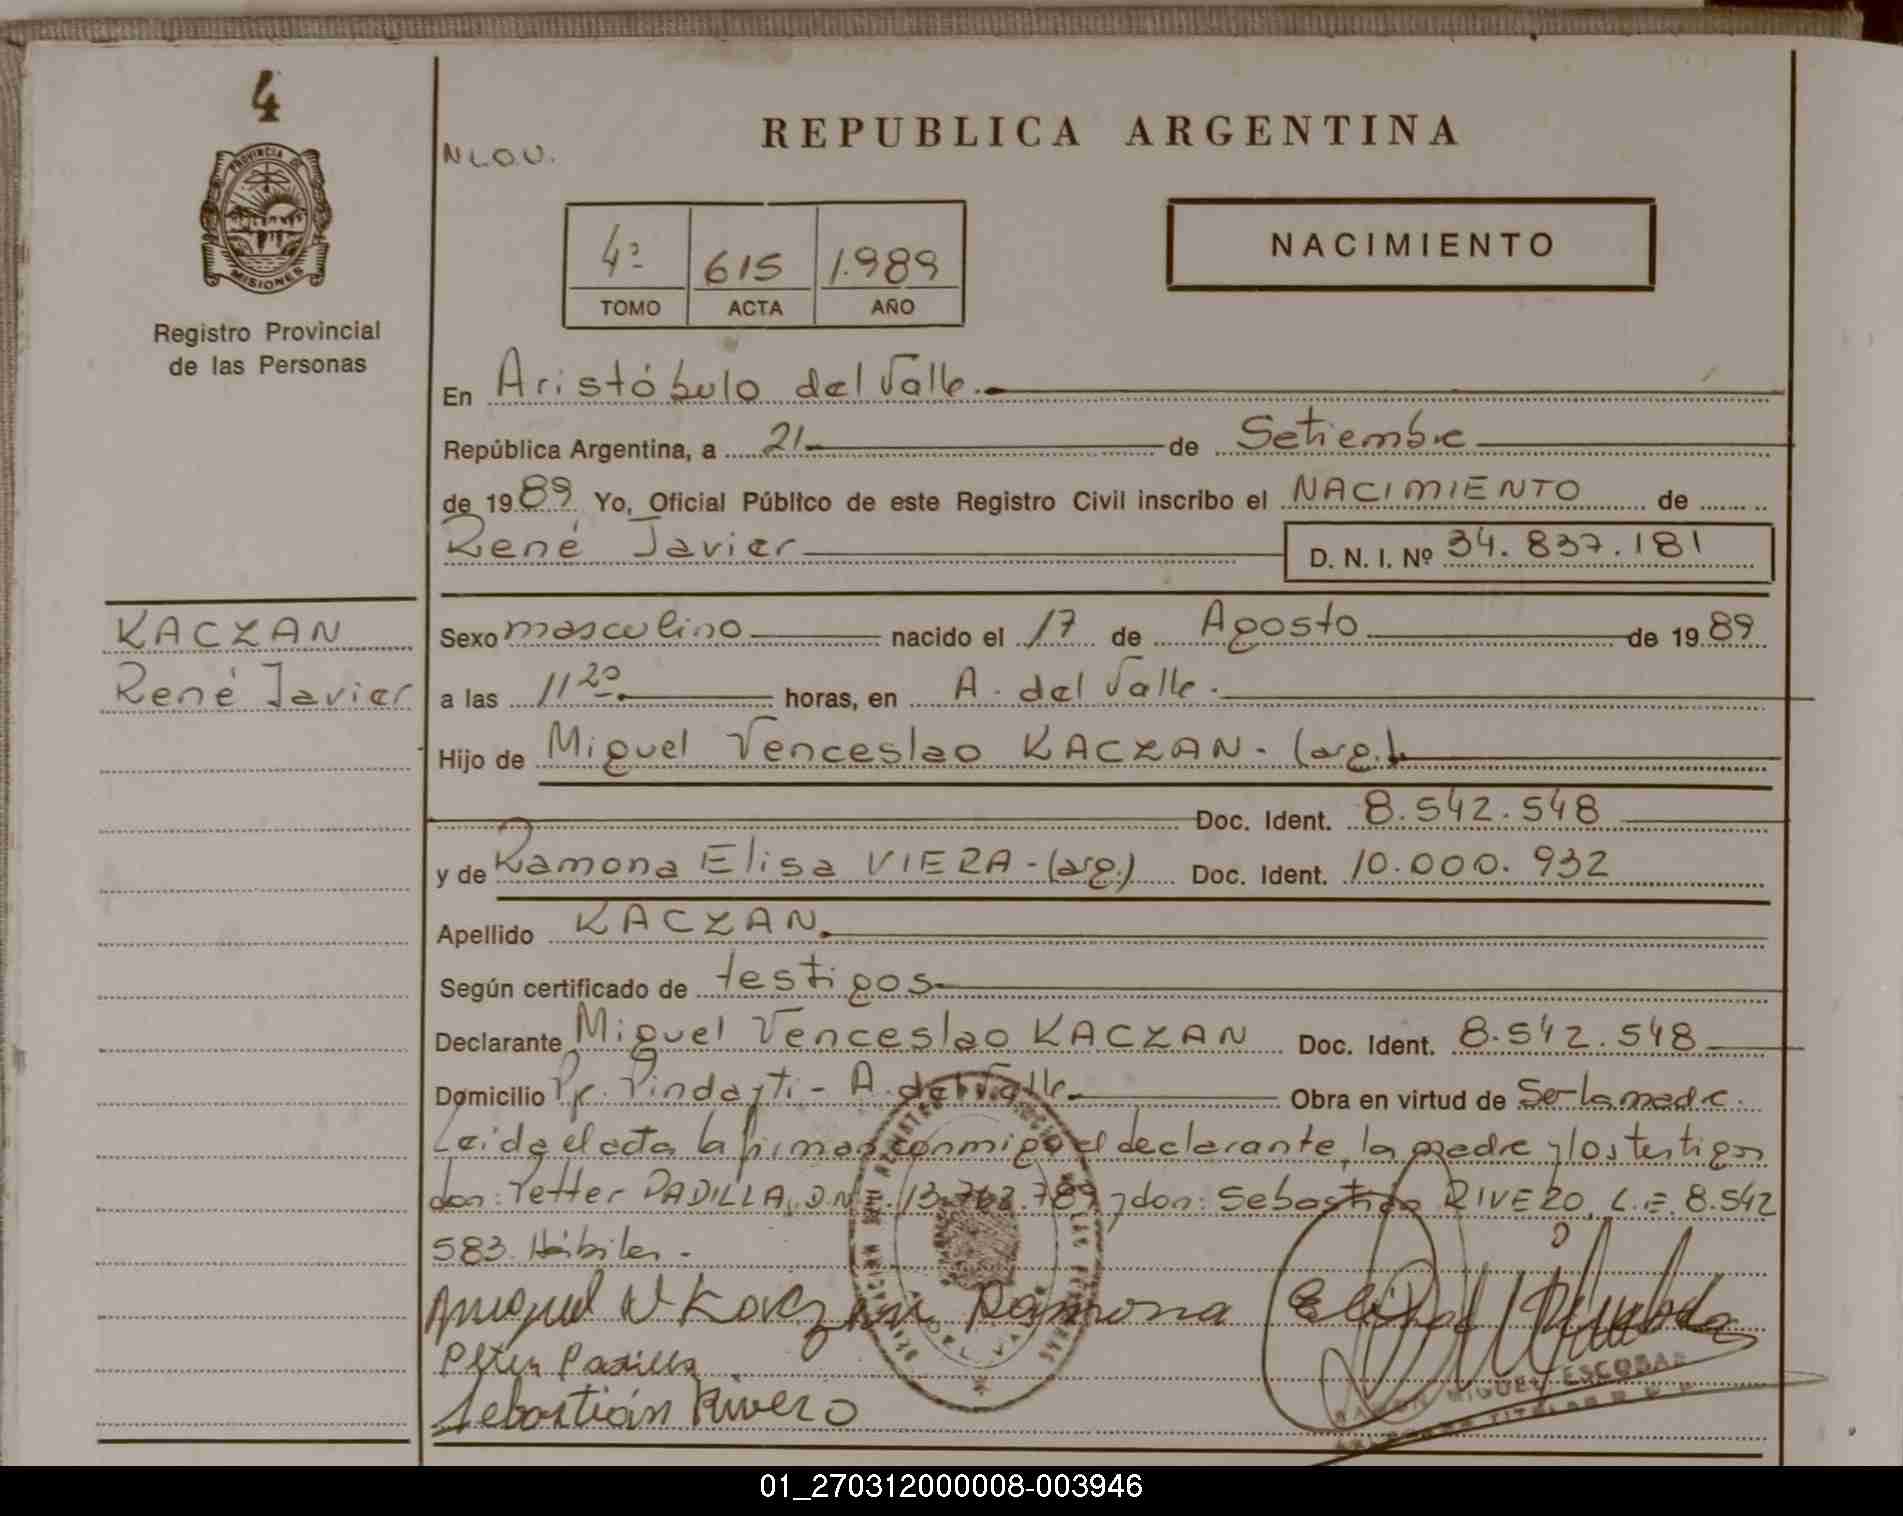 4
PROVINCIA DE
MISIONES
Registro Provincial
de las Personas
KACZAN
René Javier
REPUBLICA ARGENTINA
N.L.O.U.
NACIMIENTO
4ª 615 1.989
TOMO ACTA AÑO
En Aristóbulo del Valle.-
República Argentina, a 21 de Setiembre
de 1989 Yo, Oficial Público de este Registro Civil inscribo el NACIMIENTO de
René Javier D. N. I. Nº 34.837.181
Sexo masculino nacido el 17 de Agosto de 1989
a las 11 20 horas, en A. del Valle.
Hijo de Miguel Venceslao KACZAN - (arg.)
Doc. Ident. 8.542.548
y de Ramona Elisa VIERA - (arg.) Doc. Ident. 10.000.932
Apellido KACZAN.
Según certificado de testigos
Declarante Miguel Venceslao KACZAN Doc. Ident. 8.542.548
Domicilio Pje. Pindayti - A. del Valle. Obra en virtud de Ser la madre.
Leida el acta la firman conmigo el declarante, la madre y los testigos
don: Petter PADILLA, D.N.I. 13.763.789 y don: Sebastián RIVERO, L.E. 8.542
583. Hábiles.-
Miguel V Kaczan Ramona Elisa
Peter Padilla
Sebastián Rivero
RAMON MIGUEL ESCOBAR
TITULAR
01_270312000008-003946